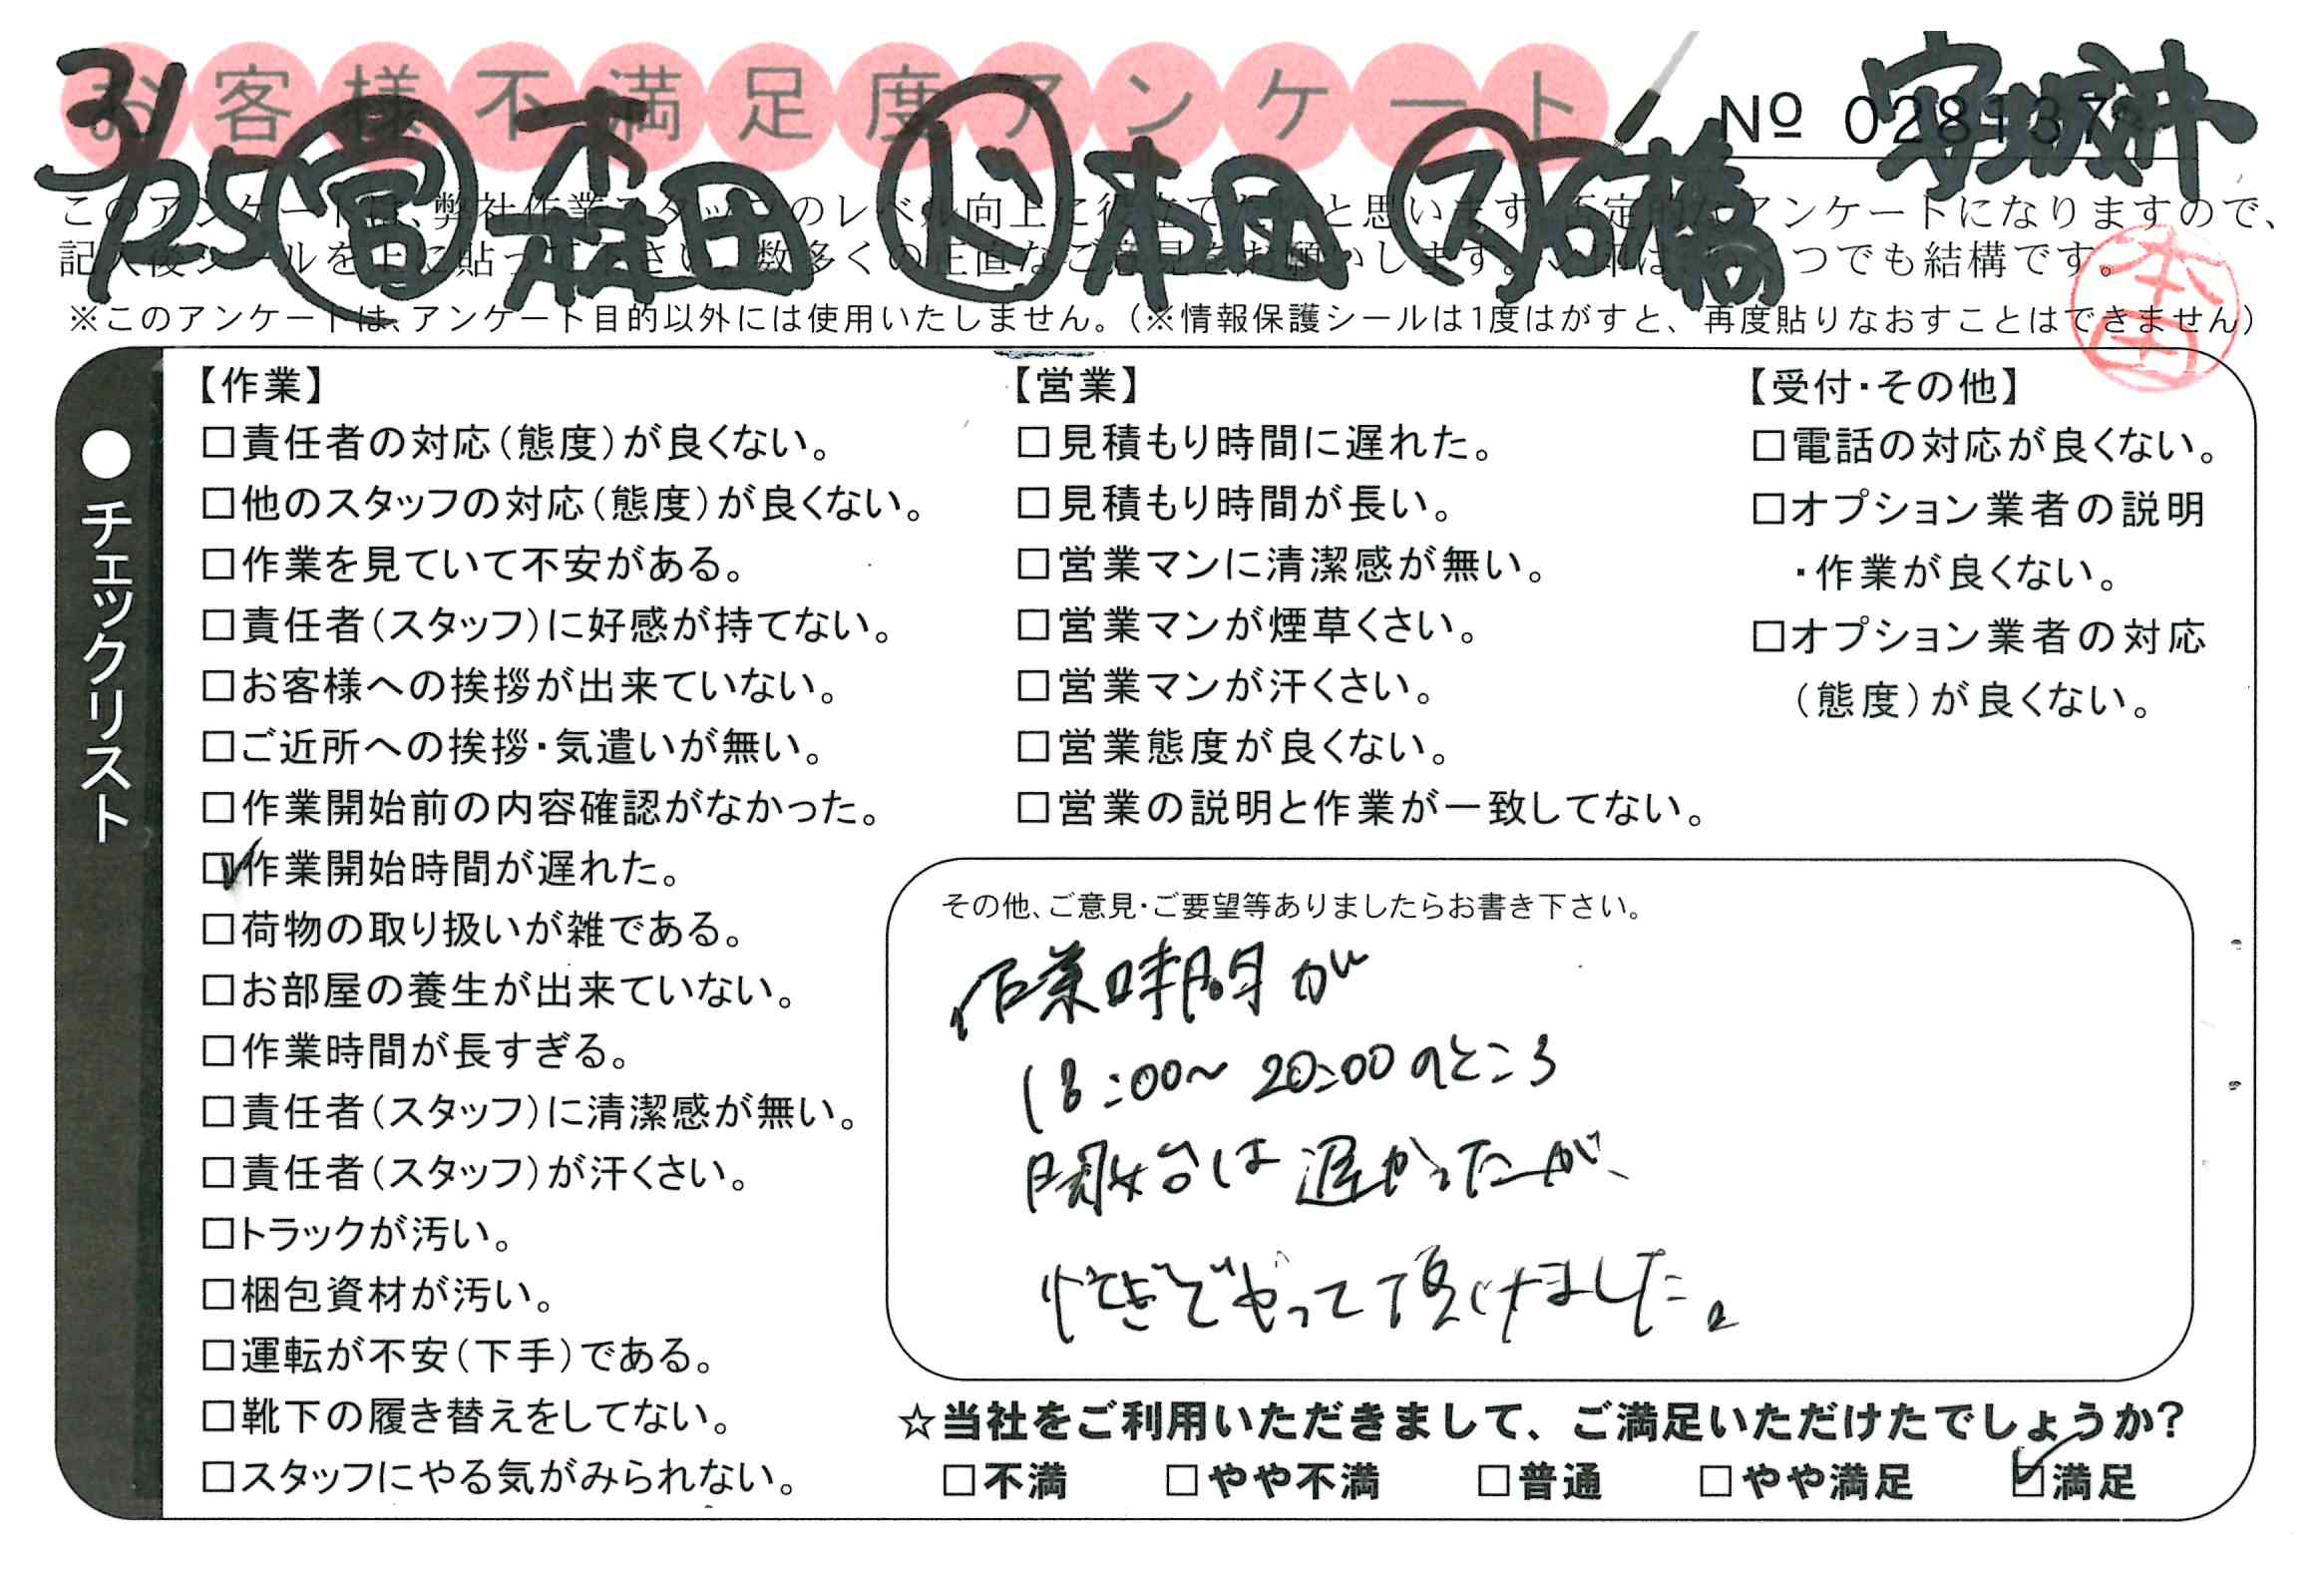 お客様不満足度アンケート
No 028137
3/25 営 森田 ド 本田 ス 石橋
このアンケートは、弊社作業スタッフのレベル向上に役立てたいと思います。否定的なアンケートになりますので、
記入後シールを上に貼って下さい。数多くの正直なご意見をお願いします。 つでも結構です。
※このアンケートは、アンケート目的以外には使用いたしません。(※情報保護シールは1度はがすと、再度貼りなおすことはできません)
本田
●チェックリスト
【作業】
□責任者の対応(態度)が良くない。
□他のスタッフの対応(態度)が良くない。
□作業を見ていて不安がある。
□責任者(スタッフ)に好感が持てない。
□お客様への挨拶が出来ていない。
□ご近所への挨拶・気遣いが無い。
□作業開始前の内容確認がなかった。
☑作業開始時間が遅れた。
□荷物の取り扱いが雑である。
□お部屋の養生が出来ていない。
□作業時間が長すぎる。
□責任者(スタッフ)に清潔感が無い。
□責任者(スタッフ)が汗くさい。
□トラックが汚い。
□梱包資材が汚い。
□運転が不安(下手)である。
□靴下の履き替えをしてない。
□スタッフにやる気がみられない。
【営業】
□見積もり時間に遅れた。
□見積もり時間が長い。
□営業マンに清潔感が無い。
□営業マンが煙草くさい。
□営業マンが汗くさい。
□営業態度が良くない。
□営業の説明と作業が一致してない。
【受付・その他】
□電話の対応が良くない。
□オプション業者の説明
・作業が良くない。
□オプション業者の対応
(態度)が良くない。
その他、ご意見・ご要望等ありましたらお書き下さい。
作業時間が
18:00~20:00のところ
開始は遅かったが、
いそぎでやって頂けました。
☆当社をご利用いただきまして、ご満足いただけたでしょうか?
□不満 □やや不満 □普通 □やや満足 ☑満足